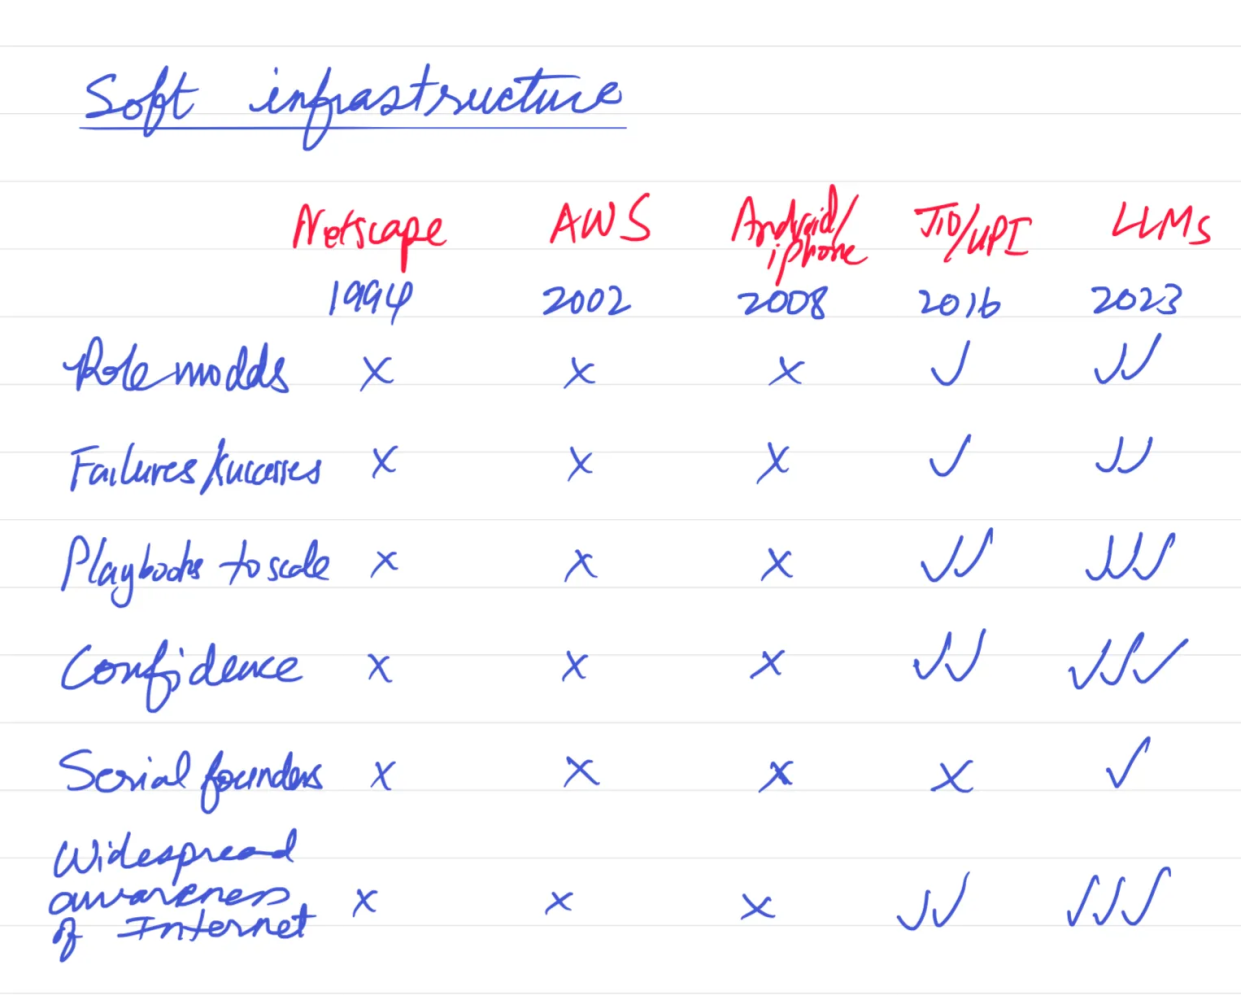 Soft infrastructure
Netscape AWS Android/iphone JIO/UPI LLMs
1994 2002 2008 2016 2023
Role models × × × ✓ ✓✓
Failures/successes × × × ✓ ✓✓
Playbooks to scale × × × ✓✓ ✓✓✓
Confidence × × × ✓✓ ✓✓✓
Serial founders × × × × ✓
Widespread
awareness × × × ✓✓ ✓✓✓
of Internet